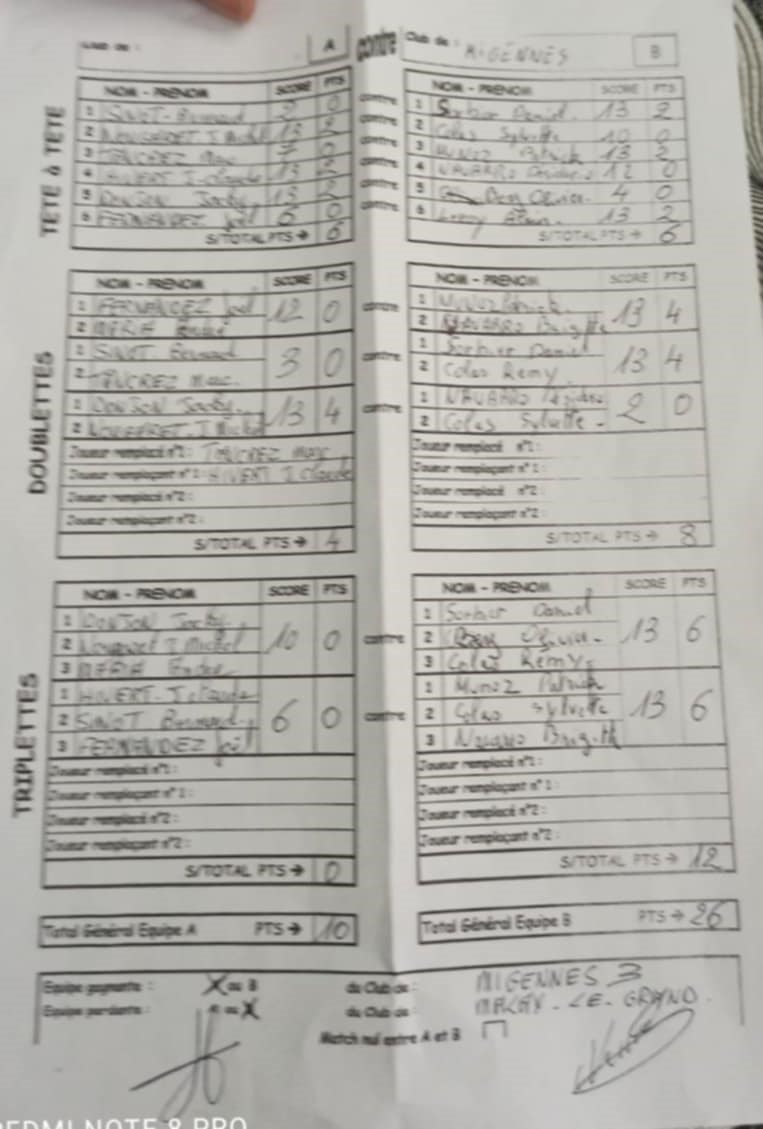 Club de : A contre Club de : MIGENNES B
TÊTE à TÊTE
NOM - PRENOM SCORE PTS NOM - PRENOM SCORE PTS
1 SINOT Bernard 2 0 contre 1 Sorbier Daniel. 13 2
2 NOUGARET J. Michel 13 2 contre 2 Colas Sylvette 10 0
3 Marc 7 0 contre 3 MUNOZ Patrick 13 2
4 HIVERT J. Claude 13 2 contre 4 NAVARRO 12 0
5 DONJON Jacky 13 2 contre 5 Olivier. 4 0
6 FERNANDEZ Joël 6 0 contre 6 Alain. 13 2
S/TOTAL PTS → 6 S/TOTAL PTS → 6
DOUBLETTES
NOM - PRENOM SCORE PTS NOM - PRENOM SCORE PTS
1 FERNANDEZ Joël 12 0 contre 1 MUNOZ Patrick. 13 4
2 André 2 NAVARRO Brigitte
1 SINOT Bernard 3 0 contre 1 Sorbier Daniel 13 4
2 Marc. 2 Colas Remy
1 DONJON Jacky. 13 4 contre 1 NAVARRO 2 0
2 J. Michel 2 Colas Sylvette -
Joueur remplacé n°1 : Marc Joueur remplacé n°1 :
Joueur remplaçant n°1 : HIVERT J Claude Joueur remplaçant n°1 :
Joueur remplacé n°2 : Joueur remplacé n°2 :
Joueur remplaçant n°2 : Joueur remplaçant n°2 :
S/TOTAL PTS → 4 S/TOTAL PTS → 8
TRIPLETTES
NOM - PRENOM SCORE PTS NOM - PRENOM SCORE PTS
1 DONJON Jacky. 10 0 contre 1 Sorbier Daniel 13 6
2 J Michel 2 Olivier.
3 André 3 Colas Remy.
1 HIVERT. J Claude 6 0 contre 1 Munoz Patrick 13 6
2 SINOT Bernard. 2 Colas Sylvette
3 FERNANDEZ Joël 3 Navarro Brigitte
Joueur remplacé n°1 : Joueur remplacé n°1 :
Joueur remplaçant n°1 : Joueur remplaçant n°1 :
Joueur remplacé n°2 : Joueur remplacé n°2 :
Joueur remplaçant n°2 : Joueur remplaçant n°2 :
S/TOTAL PTS → 0 S/TOTAL PTS → 12
Total Général Equipe A PTS → 10 Total Général Equipe B PTS → 26
Equipe gagnante : X ou B du Club de : MIGENNES 3
Equipe perdante : A ou X du Club de : MALAY - LE - GRAND.
Match nul entre A et B
REDMI NOTE 8 PRO